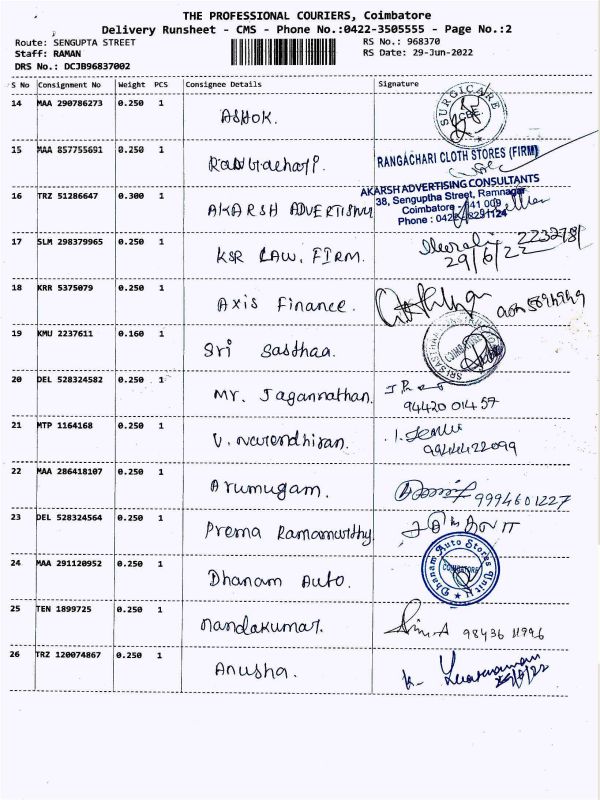 THE PROFESSIONAL COURIERS, Coimbatore
Delivery Runsheet - CMS - Phone No.:0422-3505555 - Page No.:2
Route: SENGUPTA STREET RS No.: 968370
Staff: RAMAN RS Date: 29-Jun-2022
DRS No.: DCJB96837002
S No Consignment No Weight PCS Consignee Details Signature
14 MAA 290786273 0.250 1 ASHOK. SURGICARE
15 MAA 857755691 0.250 1 RANGACHARI. RANGACHARI CLOTH STORES (FIRM)
16 TRZ 51286647 0.300 1 AKARSH ADVERTISING AKARSH ADVERTISING CONSULTANTS
38, Senguptha Street, Ramnagar
Coimbatore - 641 009
Phone : 0422
17 SLM 298379965 0.250 1 KSR LAW. FIRM.
29/6/22
18 KRR 5375079 0.250 1 Axis Finance.
19 KMU 2237611 0.160 1 Sri Sasthaa.
20 DEL 528324582 0.250 1 Mr. Jagannathan.
94420 01457
21 MTP 1164168 0.250 1 V. Narendhiran.
9944422099
22 MAA 286418107 0.250 1 Arumugam. 9994601227
23 DEL 528324564 0.250 1 Prema Ramamurthy
24 MAA 291120952 0.250 1 Dhanam Auto. Dhanam Auto Stores Unit II COIMBATORE
25 TEN 1899725 0.250 1 Nandakumar. 98436 11996
26 TRZ 120074867 0.250 1 Anusha.